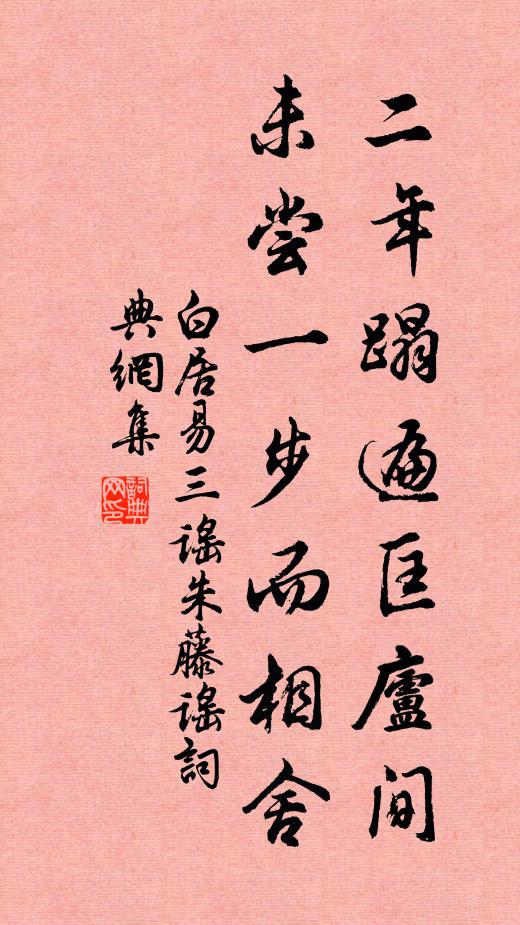 二年蹋遍匡廬间
未尝一步而相舍
白居易三謠朱藤謠詞
典網集
詞典网印